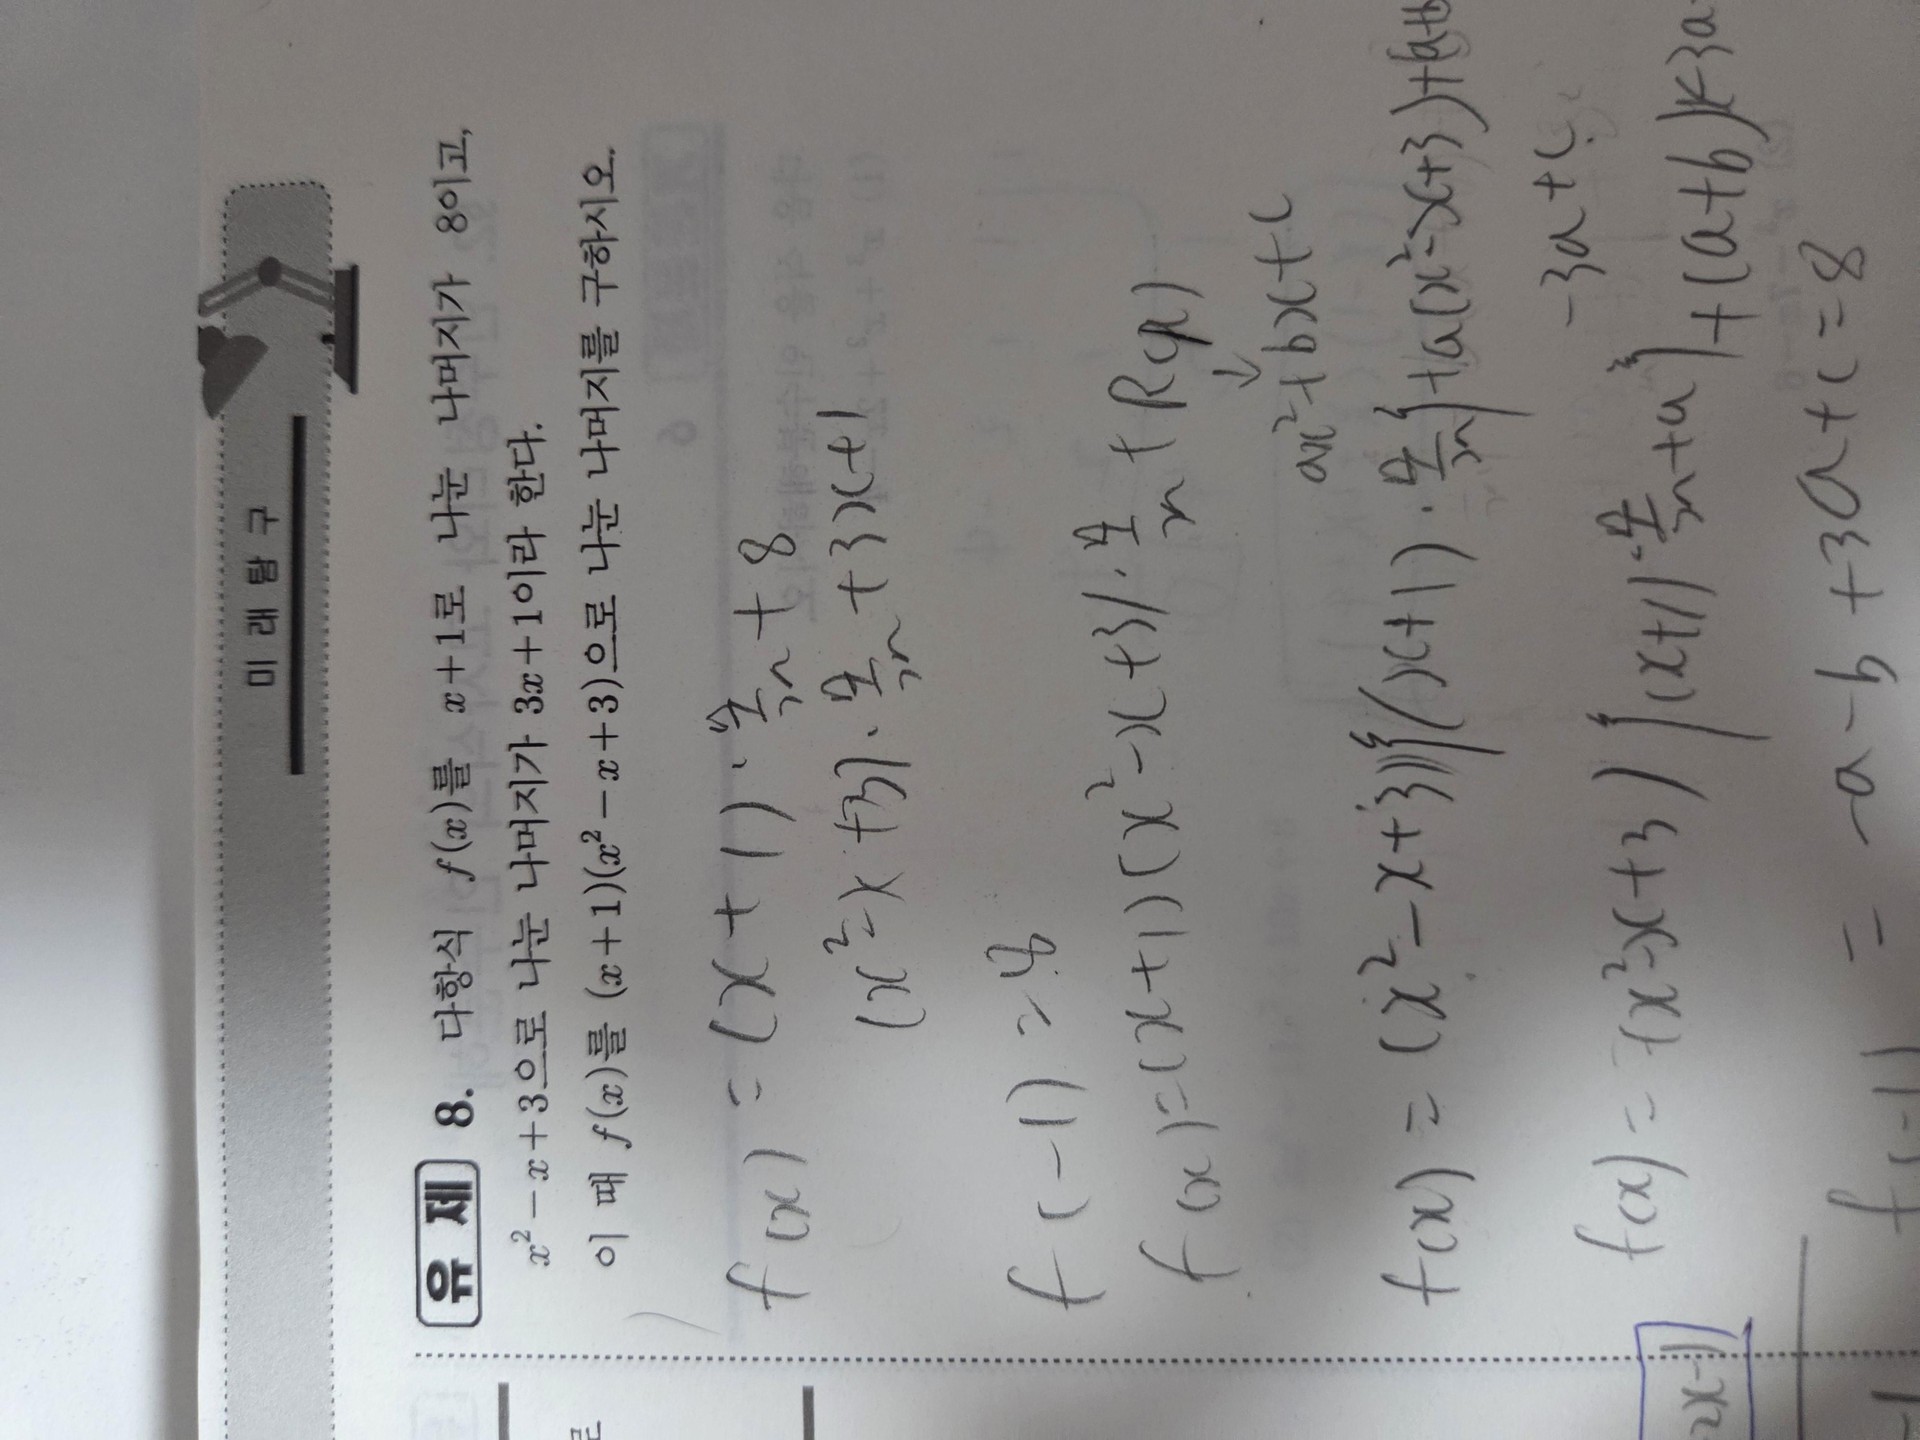 미 래 탐 구
유 제 8. 다항식 f(x)를 x+1로 나눈 나머지가 8이고,
x²-x+3으로 나눈 나머지가 3x+1이라 한다.
이 때 f(x)를 (x+1)(x²-x+3)으로 나눈 나머지를 구하시오.
f(x) = (x+1)·몫+8
(x²-x+3)·몫+3x+1
f(-1)=8
f(x)=(x+1)(x²-x+3)·몫+R(x)
ax²+bx+c
f(x) = (x²-x+3){(x+1)·몫}+a(x²-x+3)+(a+b
-3a+c
f(x) = (x²-x+3){(x+1)·몫+a}+(a+b)x-3a
f(-1) = -a-b+3a+c=8
2x-1